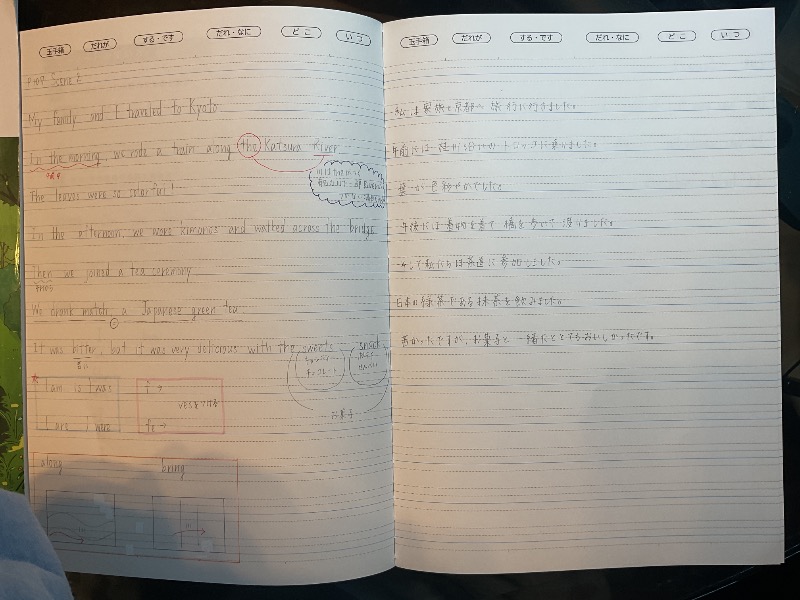 玉手箱 だれが する・です だれ・なに どこ いつ
玉手箱 だれが する・です だれ・なに どこ いつ
Scene 2
My family and I traveled to Kyoto
In the morning, we rode a train along the Katsura River
The leaves were so colorful!
In the afternoon, we wore kimonos and walked across the bridge
Then we joined a tea ceremony
We drank match a Japanese green tea
It was bitter, but it was very delicious with the sweets
snack
チョコレート
お菓子
I am is I was
I are I were
f →
vesをつける
fe →
along
bring
私は家族と京都へ旅行に行きました。
午前には 桂川沿いの トロッコに乗りました。
葉が色彩やかでした。
午後には着物を着て 橋を歩いて渡りました。
そして私たちは茶道に参加しました。
日本の緑茶である抹茶を飲みました。
苦かったですが、お菓子と一緒だととてもおいしかったです。